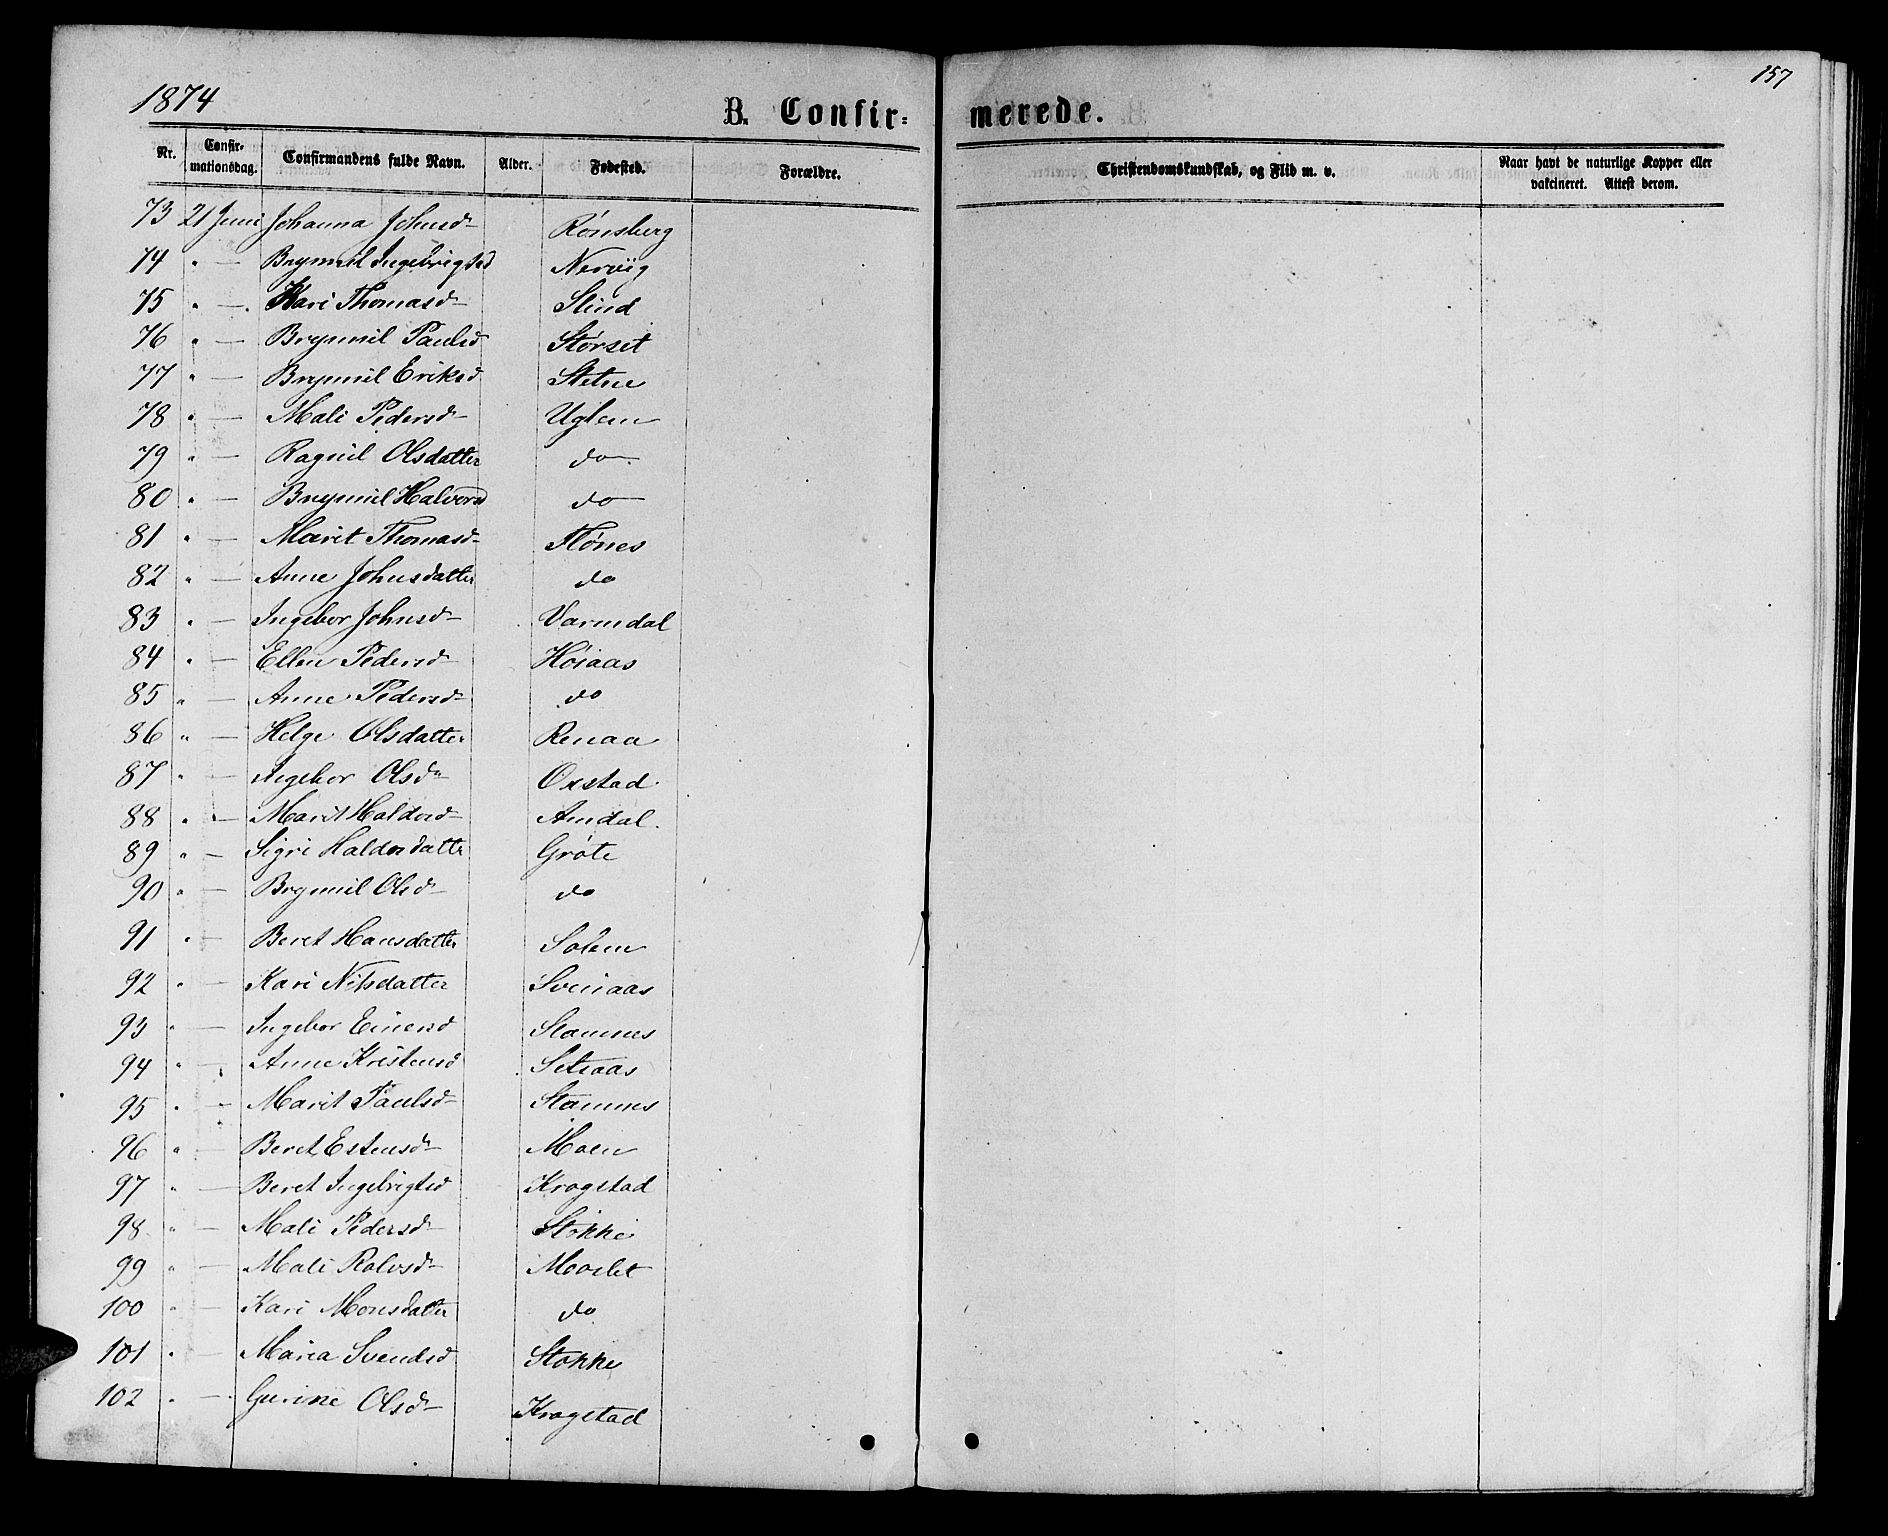 1874
B. Confir-
merede.
157
Nr.
Confir-
mationsdag.
Confirmandens fulde Navn.
Alder.
Fødested.
Forældre.
Christendomskundskab, og Flid m. v.
Naar havt de naturlige Kopper eller
vakcineret. Attest derom.
73 21 Juni Johanna Johnsd Rønsberg
74 " — Brynnil Ingebrigtsd Nervig
75 " — Kari Thomasd Slind
76 " — Brynnil Paulsd Størset
77 " — Brynnil Eriksd Stetne
78 " — Mali Pedersd Uglem
79 " — Ragnil Olsdatter do
80 " — Brynnil Halvorsd do
81 " — Marit Thomasd Flønes
82 " — Anne Johnsdatter do
83 " — Ingebor Johnsd Varmdal
84 " — Ellen Pedersd Høiaas
85 " — Anne Pedersd do
86 " — Helge Olsdatter Renaa
87 " — Ingebor Olsd Oxstad
88 " — Marit Haldosd Amdal
89 " — Sigri Haldosdatte Grøte
90 " — Brynnil Olsd do
91 " — Beret Hansdatter Solem
92 " — Kari Nilsdatter Sveiaas
93 " — Ingebor Einersd Stamnes
94 " — Anne Kristensd Setsaas
95 " — Marit Paulsd Stamnes
96 " — Beret Estensd Moen
97 " — Beret Ingebrigtsd Krogstad
98 " — Mali Pedersd Stokke
99 " — Mali Rolvsd Moaslet
100 " — Kari Monsdatter do
101 " — Maria Svendsd Stokke
102 " — Gurine Olsd Krogstad